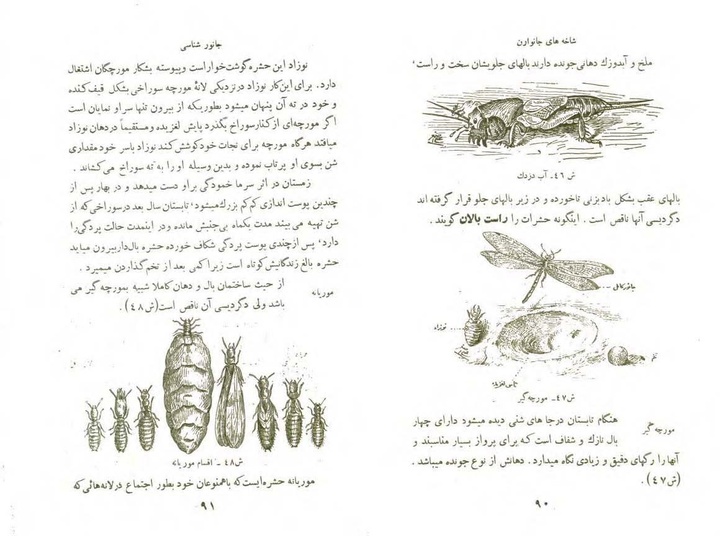 شاخه های جانوران
ملخ و آبدوزك دهانی جونده دارند بالهای جلویشان سخت و راست،
ش ٤٦ـ آب دزدك
بالهای عقب بشکل بادبزنی تاخورده و در زیر بالهای جلو قرار گرفته اند
دگردیسی آنها ناقص است . اینگونه حشرات را راست بالان گویند .
ش٤٧ـ مورچه گیر
مورچه گیر
هنگام تابستان درجا های شنی دیده میشود دارای چهار
بال نازك و شفاف است که برای پرواز بسیار مناسبند و
آنها را رگهای دقیق و زیادی نگاه میدارد . دهانش از نوع جونده میباشد .
(ش٤٧) .
۹۰
جانور شناسی
نوزاد این حشره گوشت خوار است و پیوسته بشکار مورچگان اشتغال
دارد. برای این کار نوزاد در نزدیکی لانهٔ مورچه سوراخی بشکل قیف کنده
و خود در ته آن پنهان میشود بطوریکه از بیرون تنها سر او نمایان است
اگر مورچه ای از کنار سوراخ بگذرد پایش لغزیده و مستقیماً در دهان نوزاد
میافتد هرگاه مورچه برای نجات خود کوشش کند نوزاد با سر خود مقداری
شن بسوی او پرتاب نموده و بدین وسیله او را به ته سوراخ می کشاند .
زمستان در اثر سرما خمودگی براو دست میدهد و در بهار پس از
چندین پوست اندازی کم کم بزرگ میشود، تابستان سال بعد در سوراخی که از
شن تهیه می بیند مدت یکماه بی جنبش مانده و در اینمدت حالت پردگی را
دارد، پس از چندی پوست پردگی شکاف خورده حشره بال دار بیرون میاید
حشره بالغ زندگانیش کوتاه است زیرا کمی بعد از تخم گذاردن میمیرد .
موریانه
از حیث ساختمان بال و دهان کاملا شبیه بمورچه گیر می
باشد ولی دگردیسی آن ناقص است (ش٤٨) .
ش٤٨ـ اقسام موریانه
موریانه حشره ایست که با همنوعان خود بطور اجتماع در لانه هائی که
۹۱